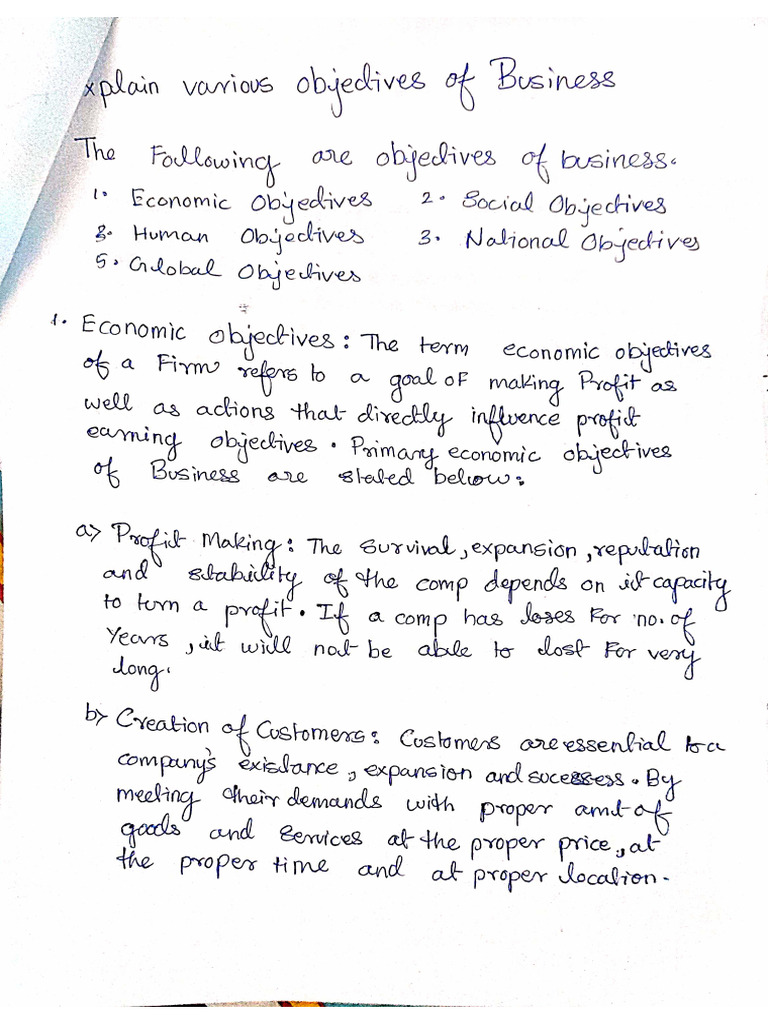 xplain various objectives of Business
The Following are objectives of business.
1. Economic Objectives 2. Social Objectives
3. Human Objectives 3. National Objectives
5. Global Objectives
1. Economic objectives: The term economic objectives
of a Firm refers to a goal of making Profit as
well as actions that directly influence profit
earning objectives. Primary economic objectives
of Business are stated below:
a> Profit Making: The survival, expansion, reputation
and stability of the comp depends on it capacity
to turn a profit. If a comp has loses For no. of
Years, it will not be able to last For very
long.
b> Creation of Customers: Customers are essential to a
company's existance, expansion and sucessess. By
meeting their demands with proper amt of
goods and services at the proper price, at
the proper time and at proper location.